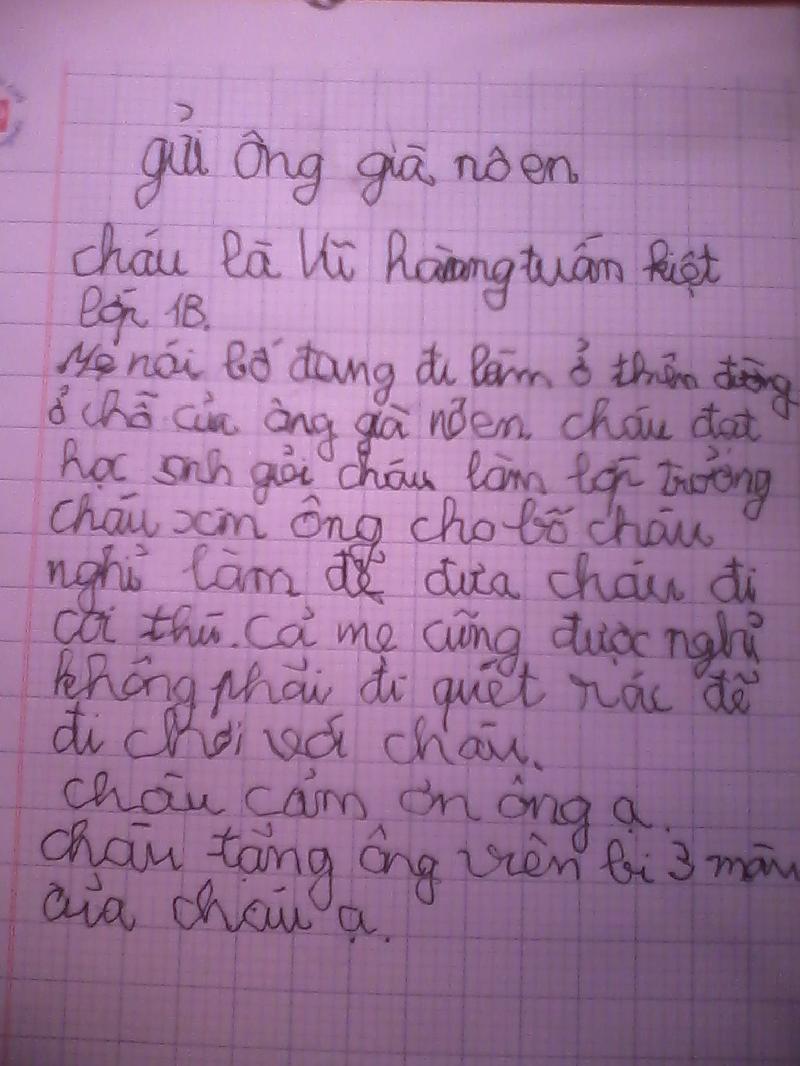 gửi ông già nô en
cháu là Vĩ hoàng tuấn kiệt
lớp 1B.
Mẹ nói bố đang đi làm ở thiên đường
ở chỗ của ông già nô en cháu đạt
học sinh giỏi cháu làm lớp trưởng
cháu xin ông cho bố cháu
nghỉ làm để đưa cháu đi
coi thú. cả mẹ cũng được nghỉ
không phải đi quét rác để
đi chơi với cháu.
cháu cảm ơn ông ạ.
cháu tặng ông viên bi 3 màu
của cháu ạ.